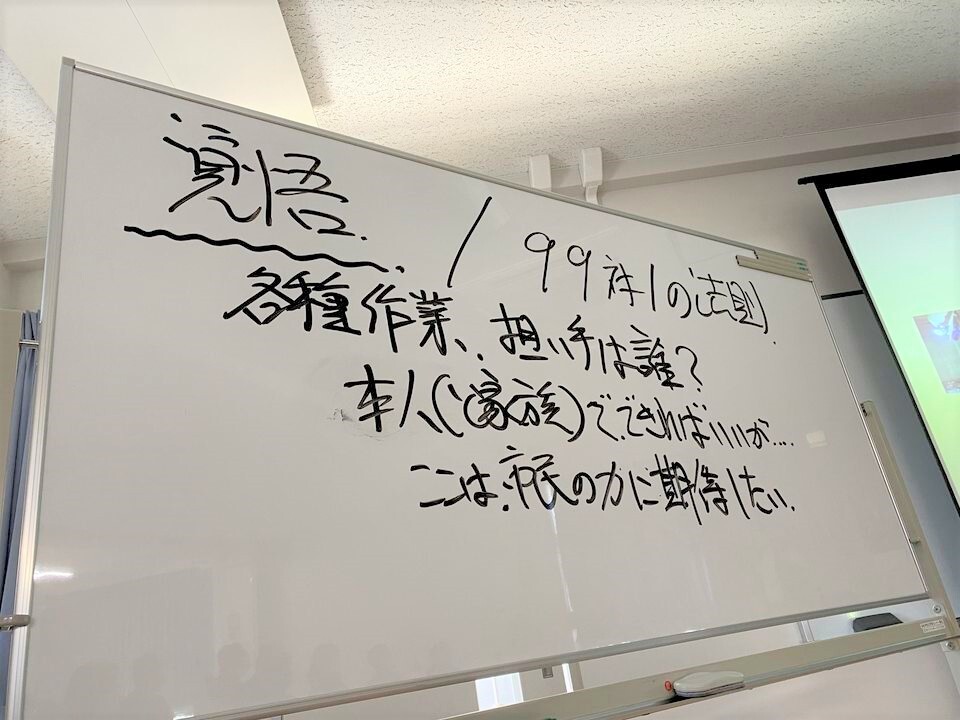 覚悟. / 99対1の法則.
各種作業、担い手は誰?
本人(家族)でできればいいが...
ここは市民の力に期待したい.